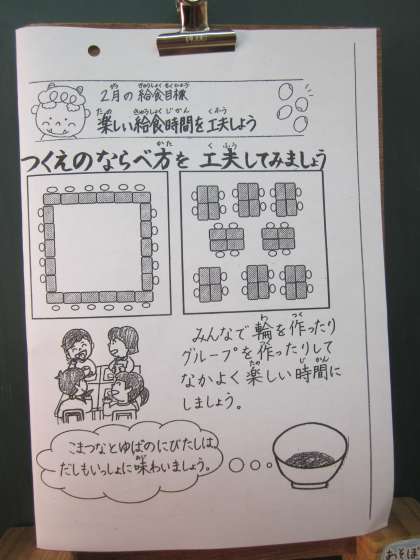 2月の 給食目標
楽しい給食時間を工夫しよう
つくえのならべ方を 工夫してみましょう
みんなで輪を作ったり
グループを作ったりして
なかよく楽しい時間に
しましょう。
こまつなとゆばのにびたしは、
だしもいっしょに味わいましょう。
おそぼ